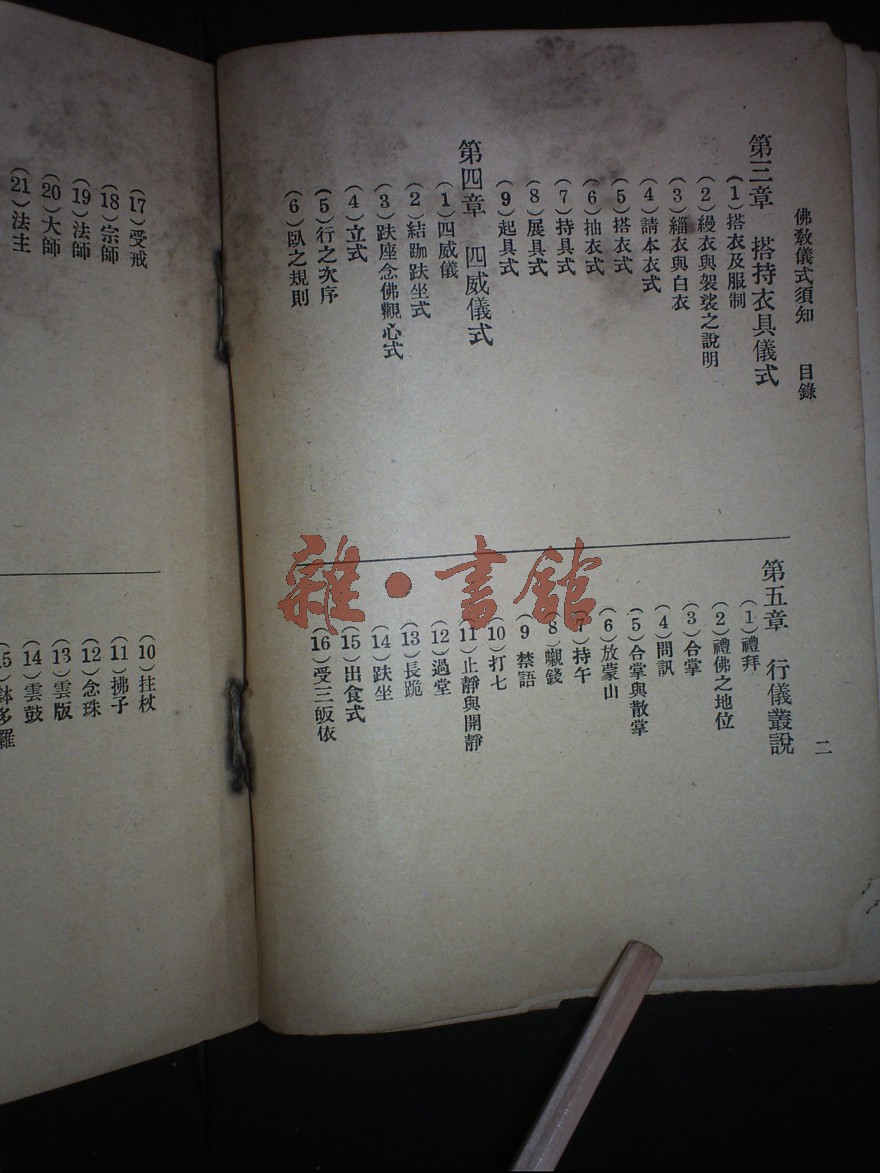 佛教儀式須知　目錄
二
第三章　搭持衣具儀式
（1）搭衣及服制
（2）縵衣與袈裟之說明
（3）緇衣與白衣
（4）請本衣式
（5）搭衣式
（6）抽衣式
（7）持具式
（8）展具式
（9）起具式
第四章　四威儀式
（1）四威儀
（2）結跏趺坐式
（3）趺座念佛觀心式
（4）立式
（5）行之次序
（6）臥之規則
第五章　行儀叢說
（1）禮拜
（2）禮佛之地位
（3）合掌
（4）問訊
（5）合掌與散掌
（6）放蒙山
（7）持午
（8）嚫錢
（9）禁語
（10）打七
（11）止靜與開靜
（12）過堂
（13）長跪
（14）趺坐
（15）出食式
（16）受三皈依
（17）受戒
（18）宗師
（19）法師
（20）大師
（21）法主
（10）拄杖
（11）拂子
（12）念珠
（13）雲版
（14）雲鼓
（15）鉢多羅
雜·書館